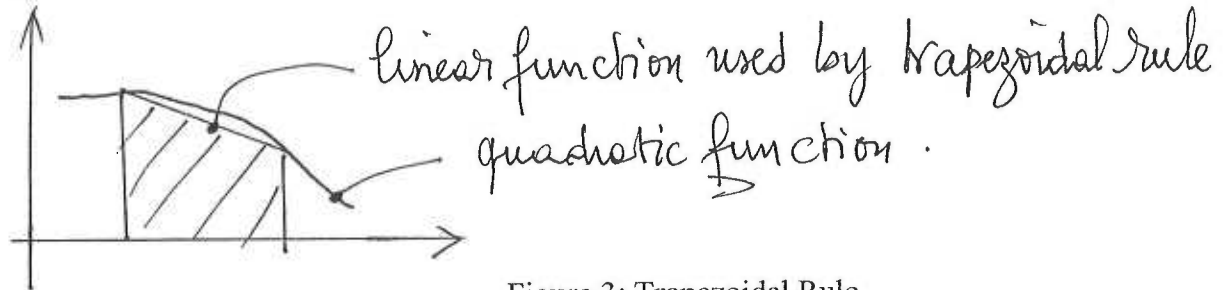 linear function used by trapezoidal rule
quadratic function.
Figure 3: Trapezoidal Rule